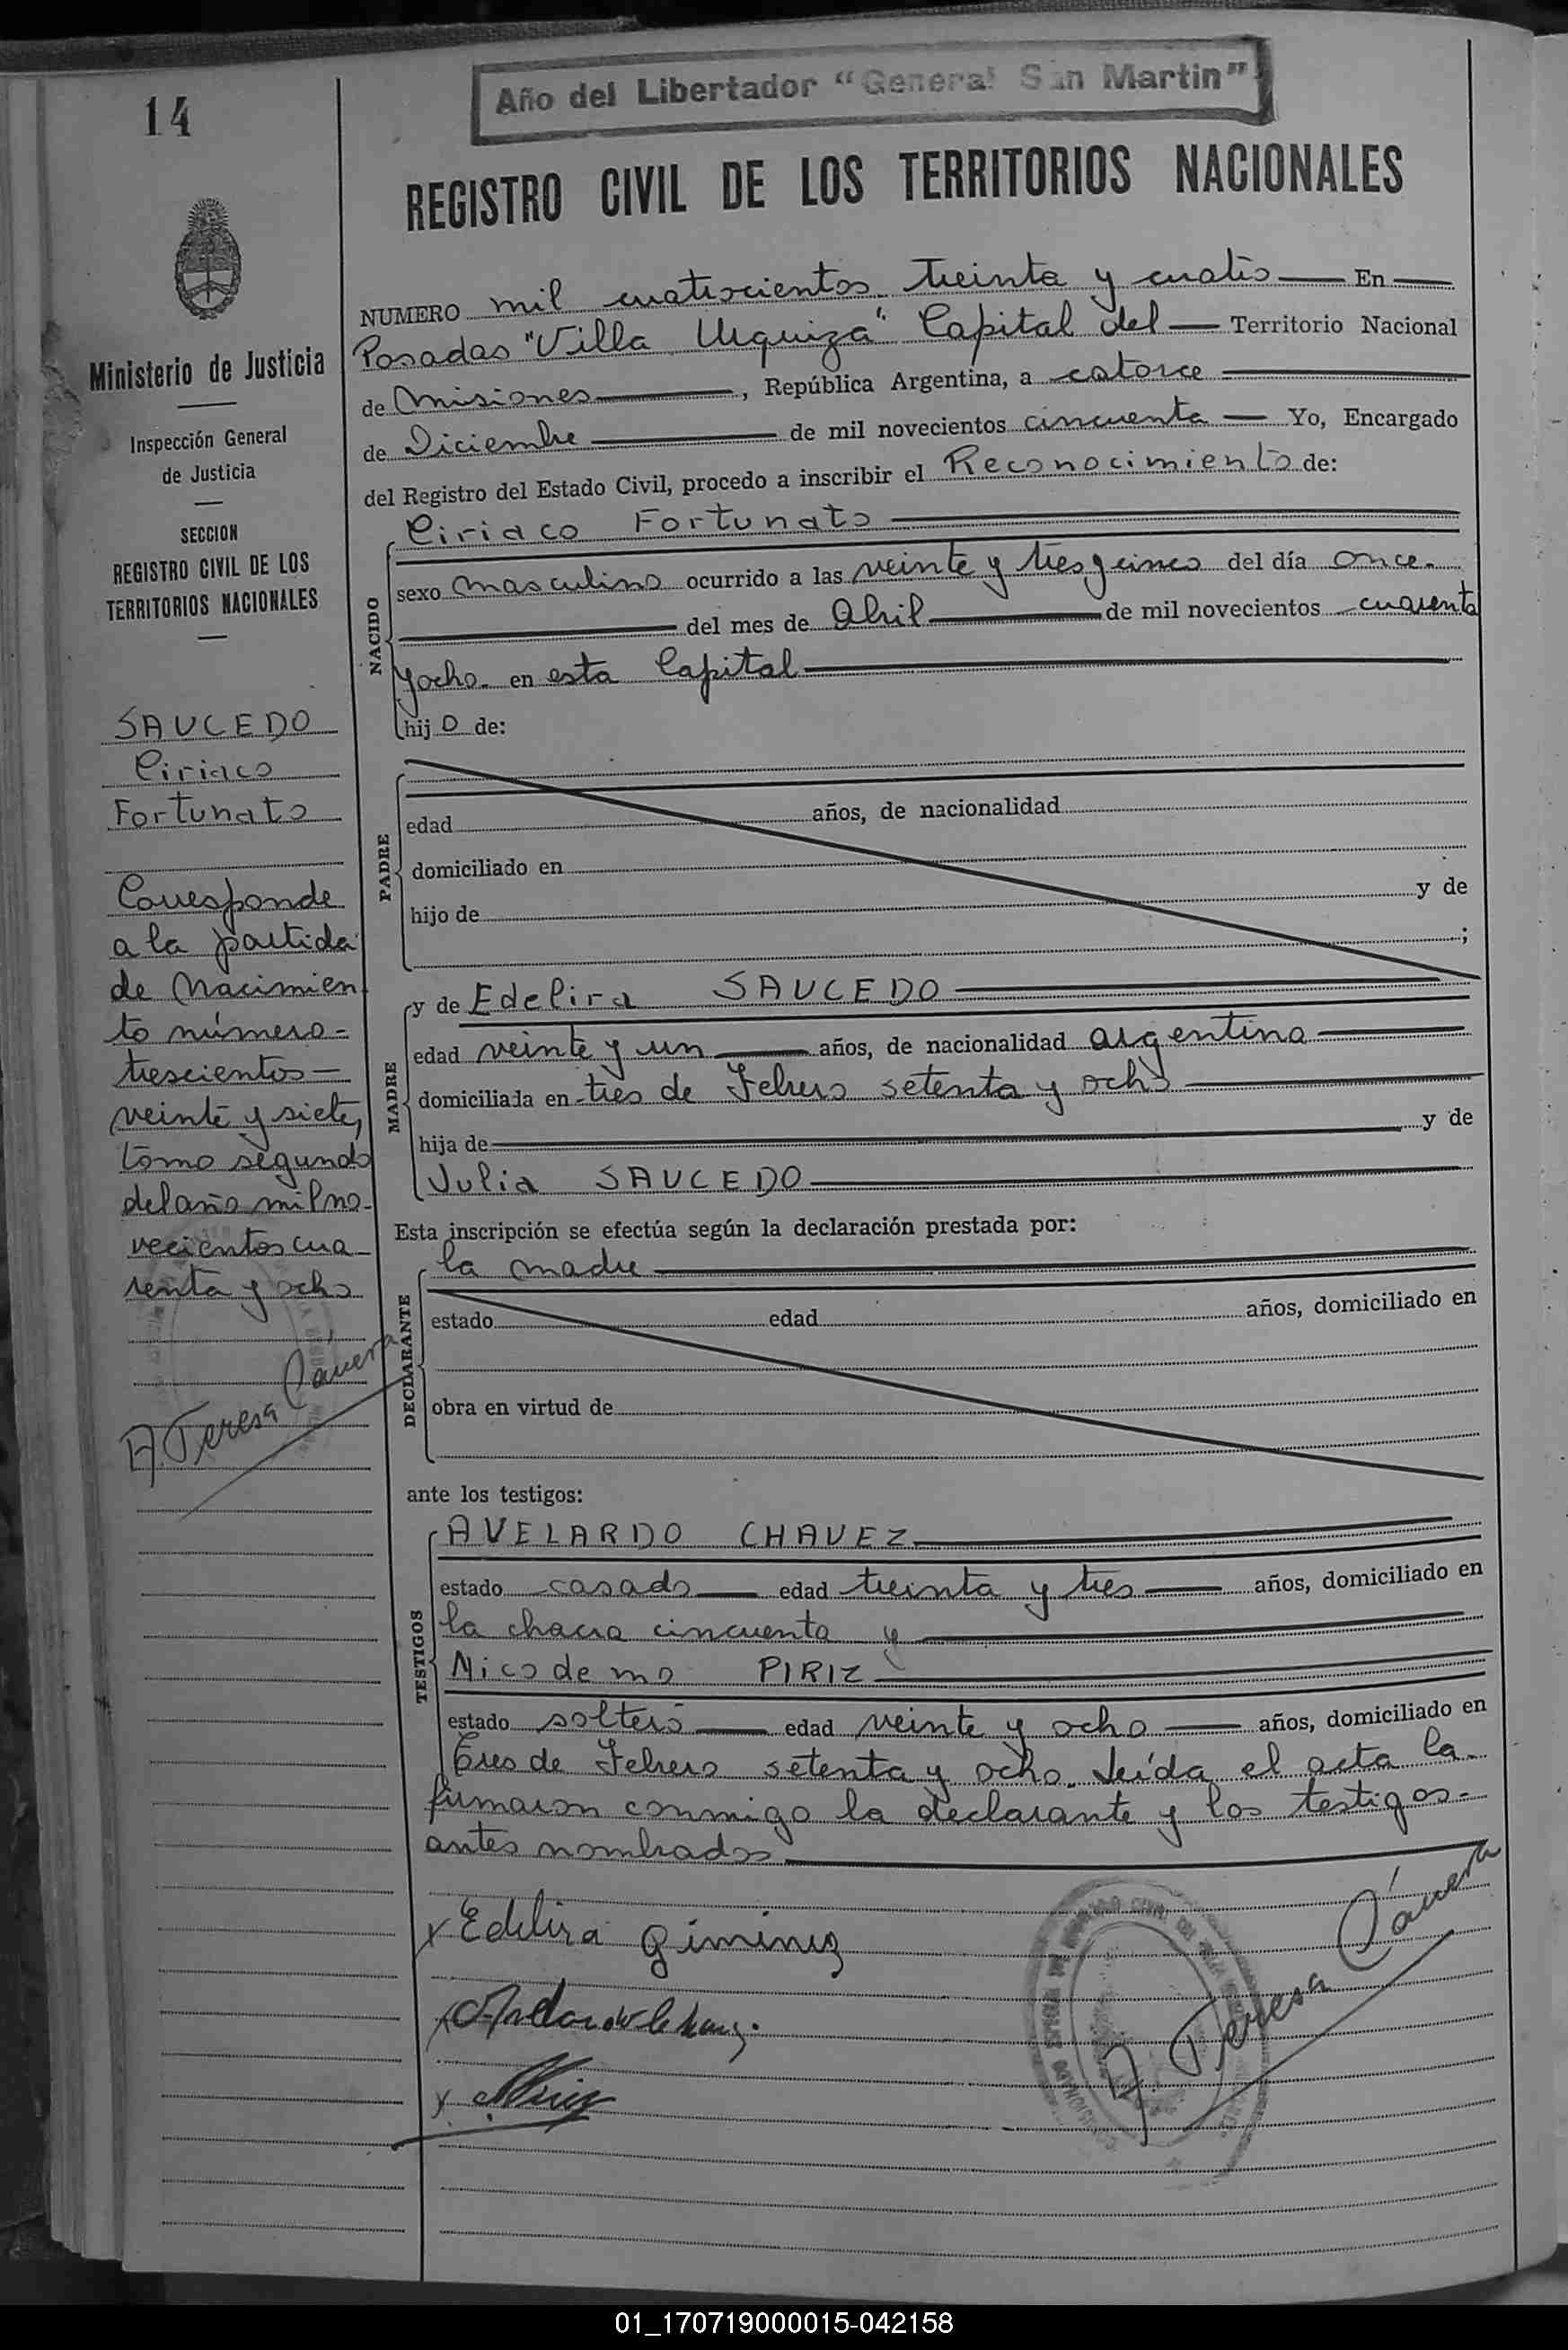 14
Año del Libertador "General San Martin"
REGISTRO CIVIL DE LOS TERRITORIOS NACIONALES
Ministerio de Justicia
Inspección General
de Justicia
SECCION
REGISTRO CIVIL DE LOS
TERRITORIOS NACIONALES
SAUCEDO
Ciriaco
Fortunato
Corresponde
a la partida
de Nacimien
to número=
trescientos—
veinte y siete,
tomo segundo
del año mil no-
vecientos cua-
renta y ocho
A. Teresa Cávera
NUMERO mil cuatrocientos treinta y cuatro En
Posadas "Villa Urquiza" Capital del Territorio Nacional
de Misiones, República Argentina, a catorce
de Diciembre de mil novecientos cincuenta Yo, Encargado
del Registro del Estado Civil, procedo a inscribir el Reconocimiento de:
NACIDO
Ciriaco Fortunato
sexo masculino ocurrido a las veinte y tres y cinco del día once
del mes de Abril de mil novecientos cuarenta
y ocho en esta Capital
hijo de:
PADRE
edad años, de nacionalidad
domiciliado en
hijo de y de
;
MADRE
y de Edelira SAUCEDO
edad veinte y un años, de nacionalidad argentina
domiciliada en tres de Febrero setenta y ocho
hija de y de
Julia SAUCEDO
Esta inscripción se efectúa según la declaración prestada por:
DECLARANTE
la madre
estado edad años, domiciliado en
obra en virtud de
ante los testigos:
TESTIGOS
AVELARDO CHAVEZ
estado casado edad treinta y tres años, domiciliado en
la chacra cincuenta y
Nicodemo PIRIZ
estado soltero edad veinte y ocho años, domiciliado en
tres de Febrero setenta y ocho. Leída el acta la
firmaron conmigo la declarante y los testigos
antes nombrados
x Edelira Giminez
A. Teresa Cávera
01_170719000015-042158